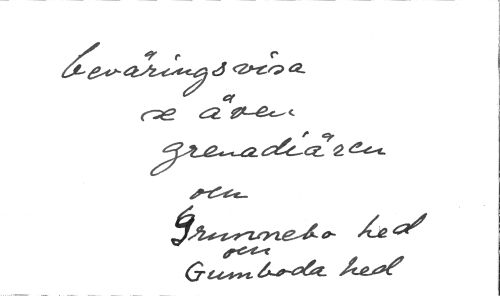 beväringsvisa
se även
grenadiären
och
Grunnebo hed
och
Gumboda hed